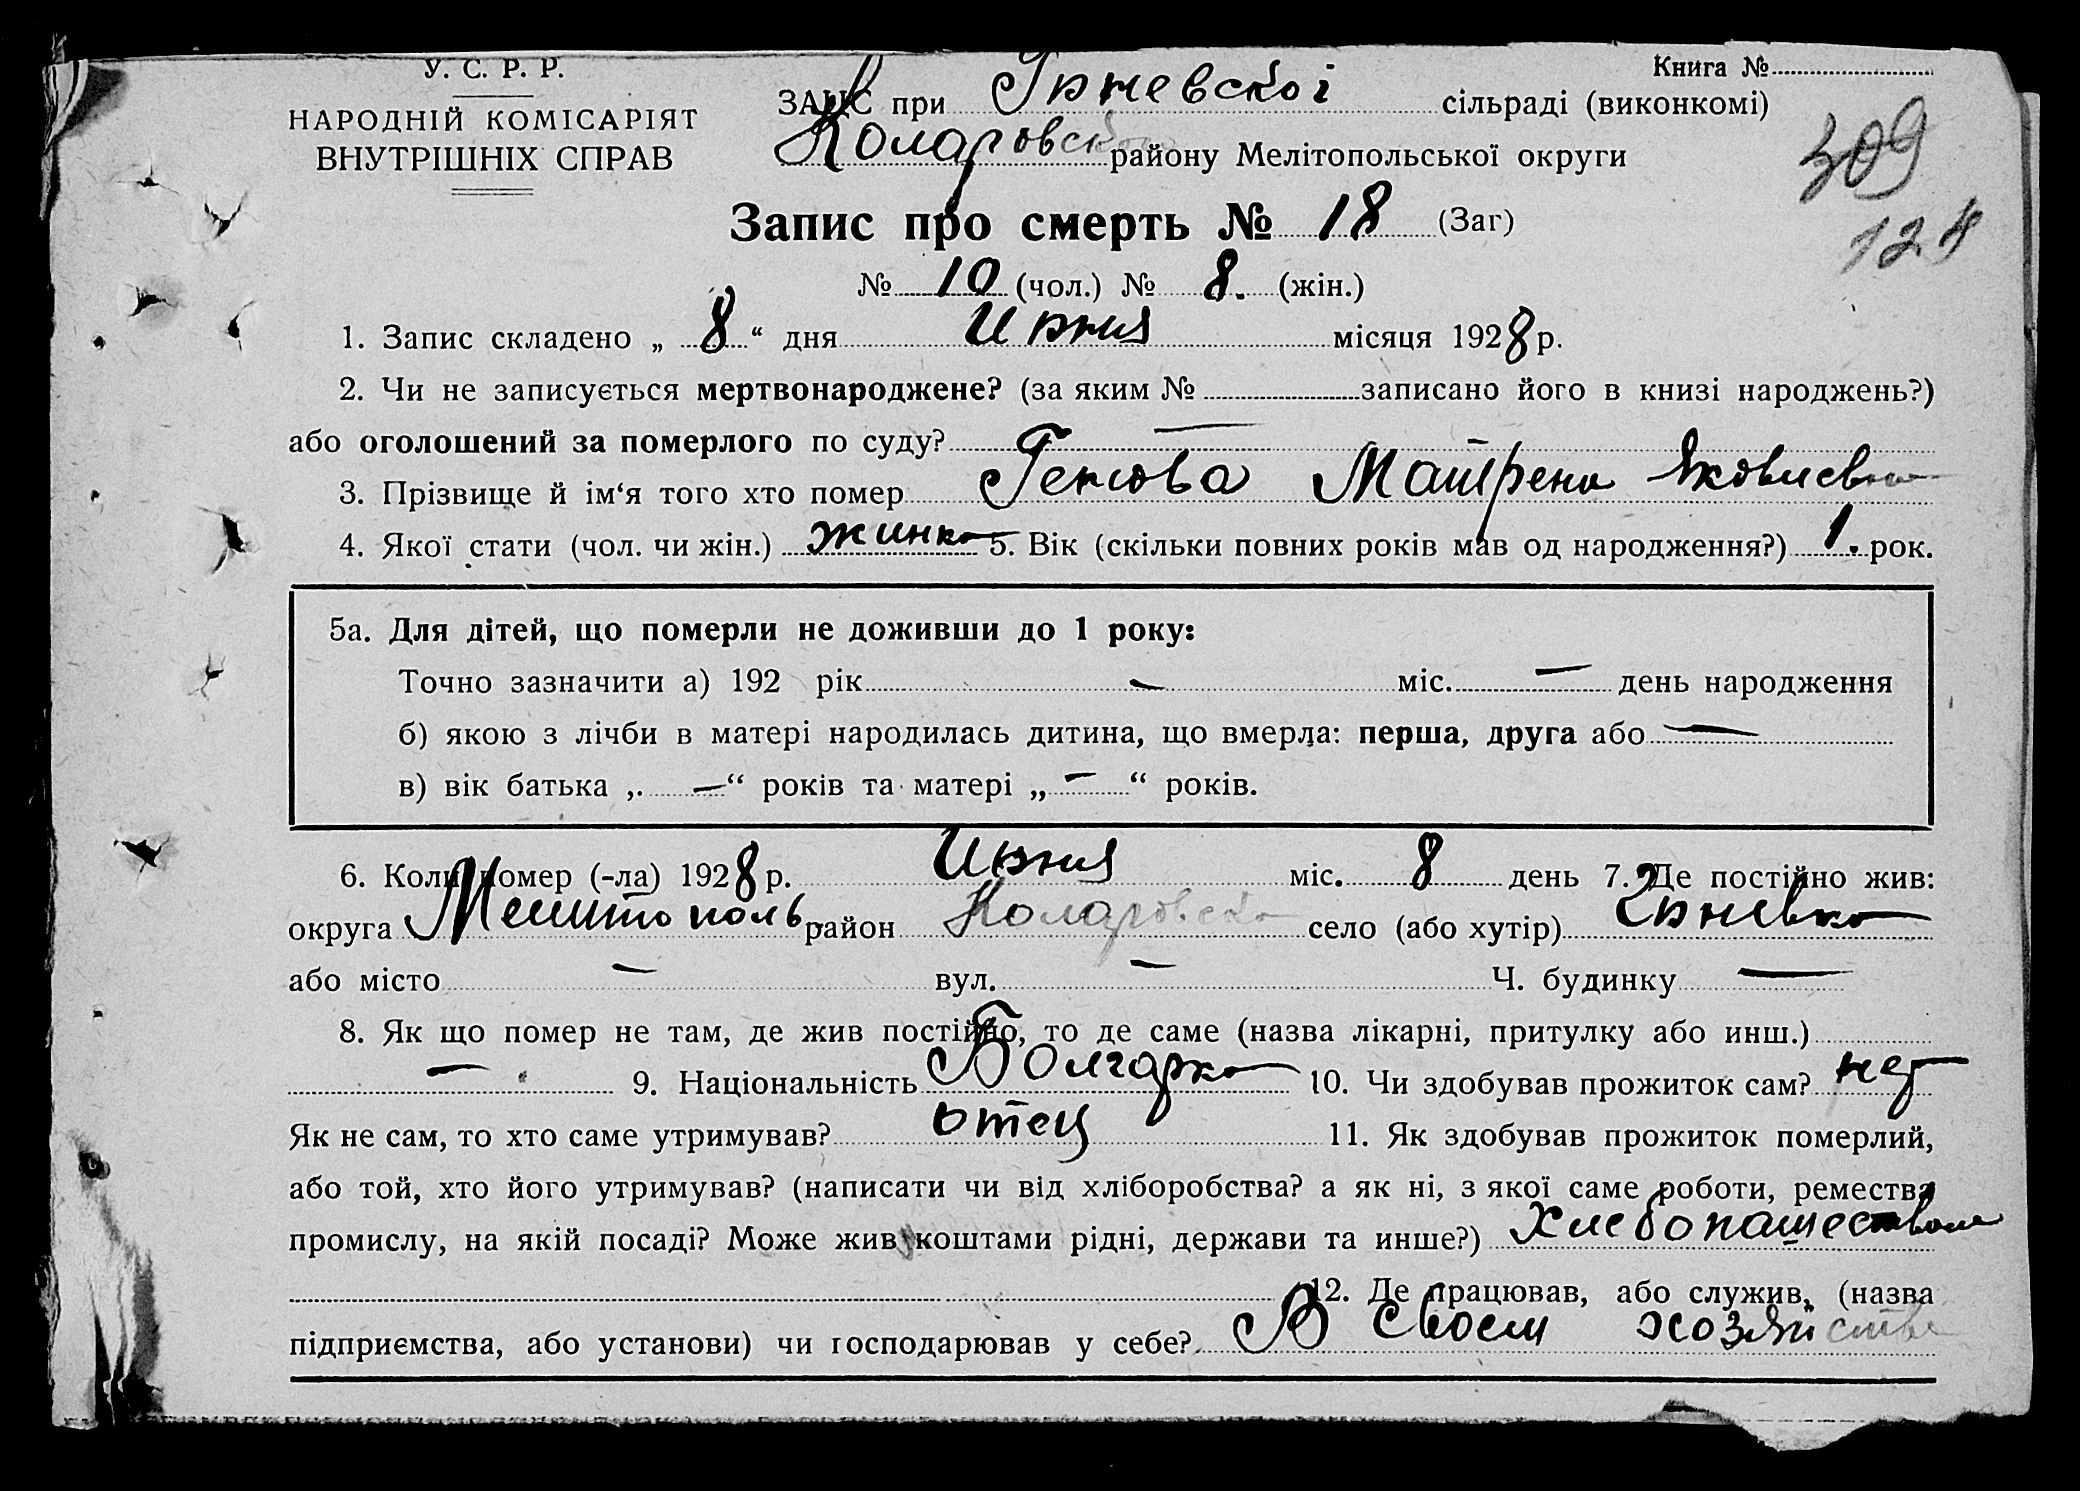 У. С. Р. Р.
НАРОДНІЙ КОМІСАРІЯТ
ВНУТРІШНІХ СПРАВ
Книга №
ЗАЦС при Гюневскоі сільраді (виконкомі)
Коларовского району Мелітопольської округи
309
124
Запис про смерть № 18 (Заг)
№ 10 (чол.) № 8. (жін.)
1. Запис складено „ 8 “ дня Июня місяця 1928 р.
2. Чи не записується мертвонароджене? (за яким № записано його в книзі народжень?)
або оголошений за померлого по суду? —
3. Прізвище й ім‘я того хто помер Генова Матрена Яковлевна
4. Якої стати (чол. чи жін.) жинка 5. Вік (скільки повних років мав од народження?) 1. рок.
5а. Для дітей, що померли не доживши до 1 року:
Точно зазначити а) 192 рік — міс. — день народження
б) якою з лічби в матері народилась дитина, що вмерла: перша, друга або —
в) вік батька „ — “ років та матері „ — “ років.
6. Коли помер (-ла) 1928 р. Июня міс. 8 день 7. Де постійно жив:
округа Мелитополь район Коларовско село (або хутір) Гюневка
або місто — вул. — Ч. будинку —
8. Як що помер не там, де жив постійно, то де саме (назва лікарні, притулку або инш.)
— 9. Національність Болгарка 10. Чи здобував прожиток сам? нет
Як не сам, то хто саме утримував? отец 11. Як здобував прожиток померлий,
або той, хто його утримував? (написати чи від хліборобства? а як ні, з якої саме роботи, ремества
промислу, на якій посаді? Може жив коштами рідні, держави та инше?) Хлебопашеством
12. Де працював, або служив, (назва
підприємства, або установи) чи господарював у себе? В своем хозяйстве